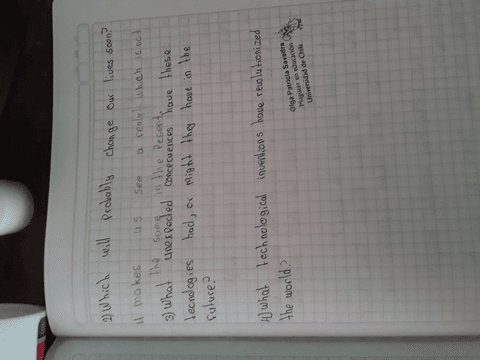 2) Which will probably change our lives soon?
it makes us see a reality which is not
the same in the recent
3) What unexpected concecuences have these
tecnologies had, or might they have in the
future?
4) What technological inventions have revolutionized
the world?
Olga Patricia Saavedra
Magister en educación
Universidad de Chile